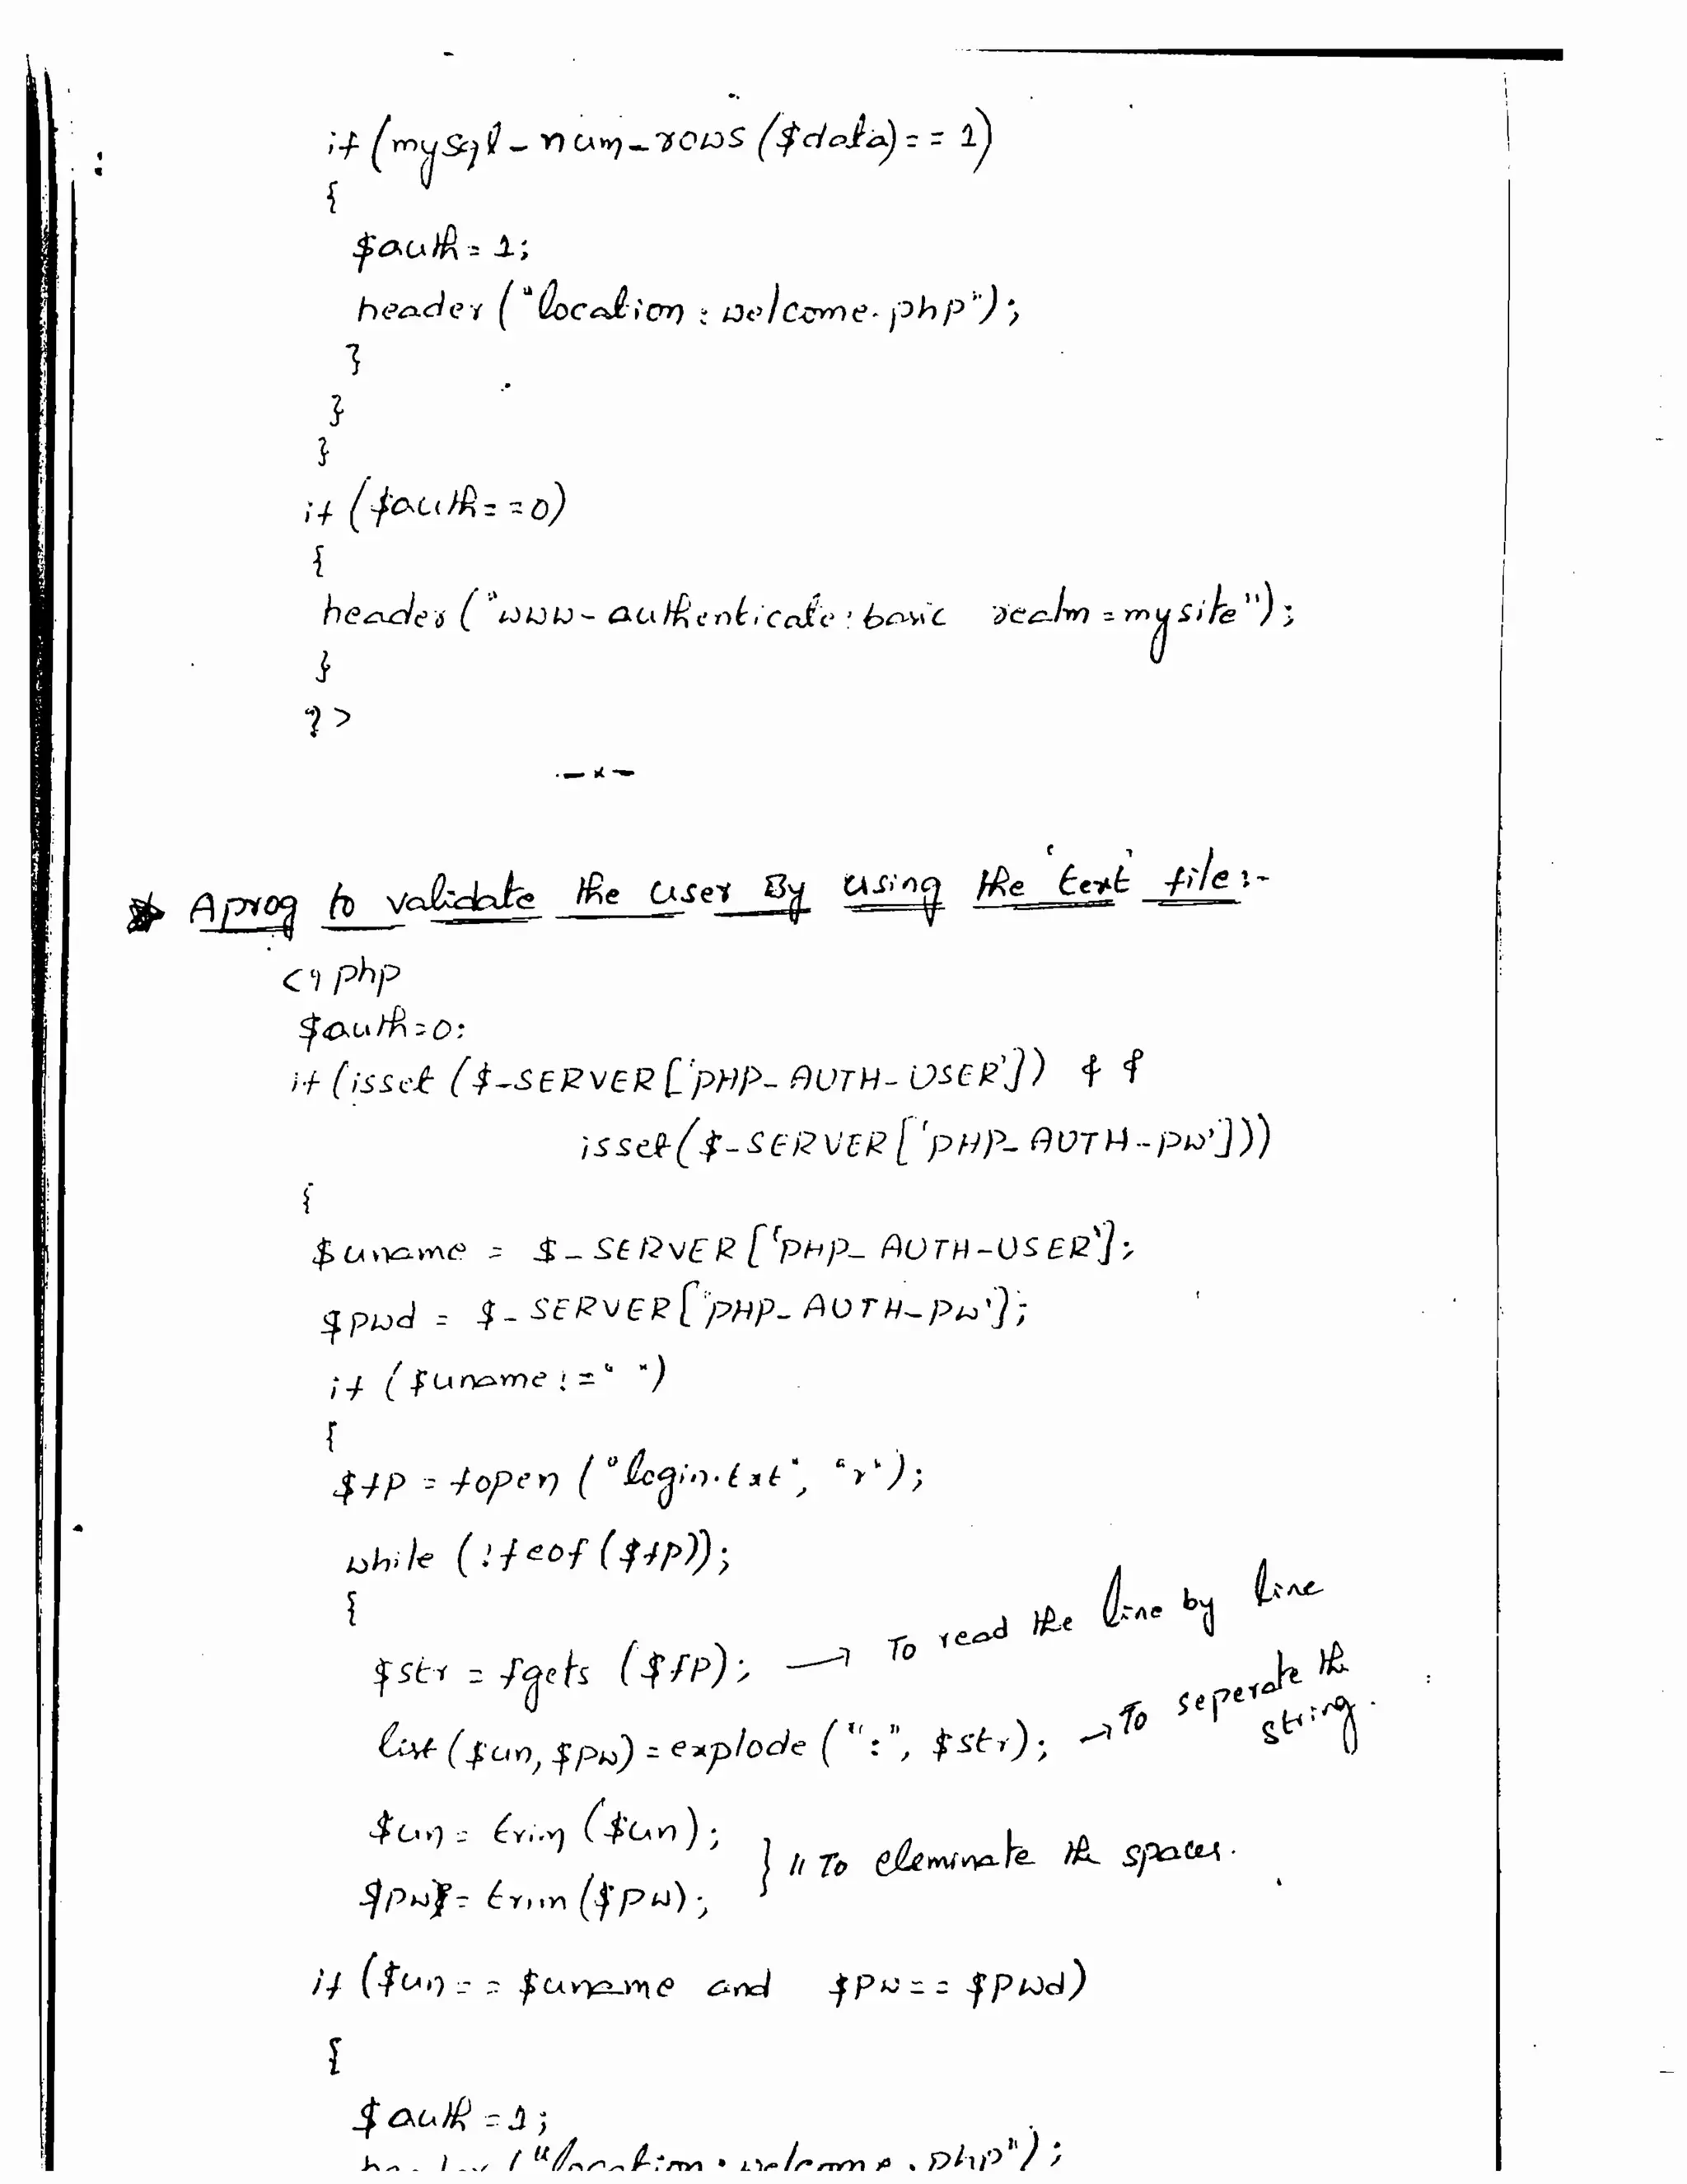 if (mysql_num_rows ($data) == 1)
{
$auth = 1;
header ("location : welcome.php");
}
}
}
if ($auth == 0)
{
header ("www-authenticate: basic realm = mysite");
}
?>
-x-
* A prog to validate the user By using the 'text' file :-
<? php
$auth = 0;
if (isset ($_SERVER ['PHP_AUTH-USER']) & &
isset ($_SERVER ['PHP_AUTH-PW']))
{
$uname = $_SERVER ['PHP_AUTH-USER'];
$pwd = $_SERVER ['PHP_AUTH_PW'];
if ($uname != " ")
{
$fp = fopen ("login.txt", "r");
while (!feof ($fp));
{
$str = fgets ($fp); → To read the line by line
list ($un, $pw) = explode (":", $str); → To seperate the string.
$un = trim ($un);
$pw = trim ($pw); } // To eleminate the spaces.
if ($un == $uname and $pw == $pwd)
{
$auth = 1;
header ("location : welcome . php");